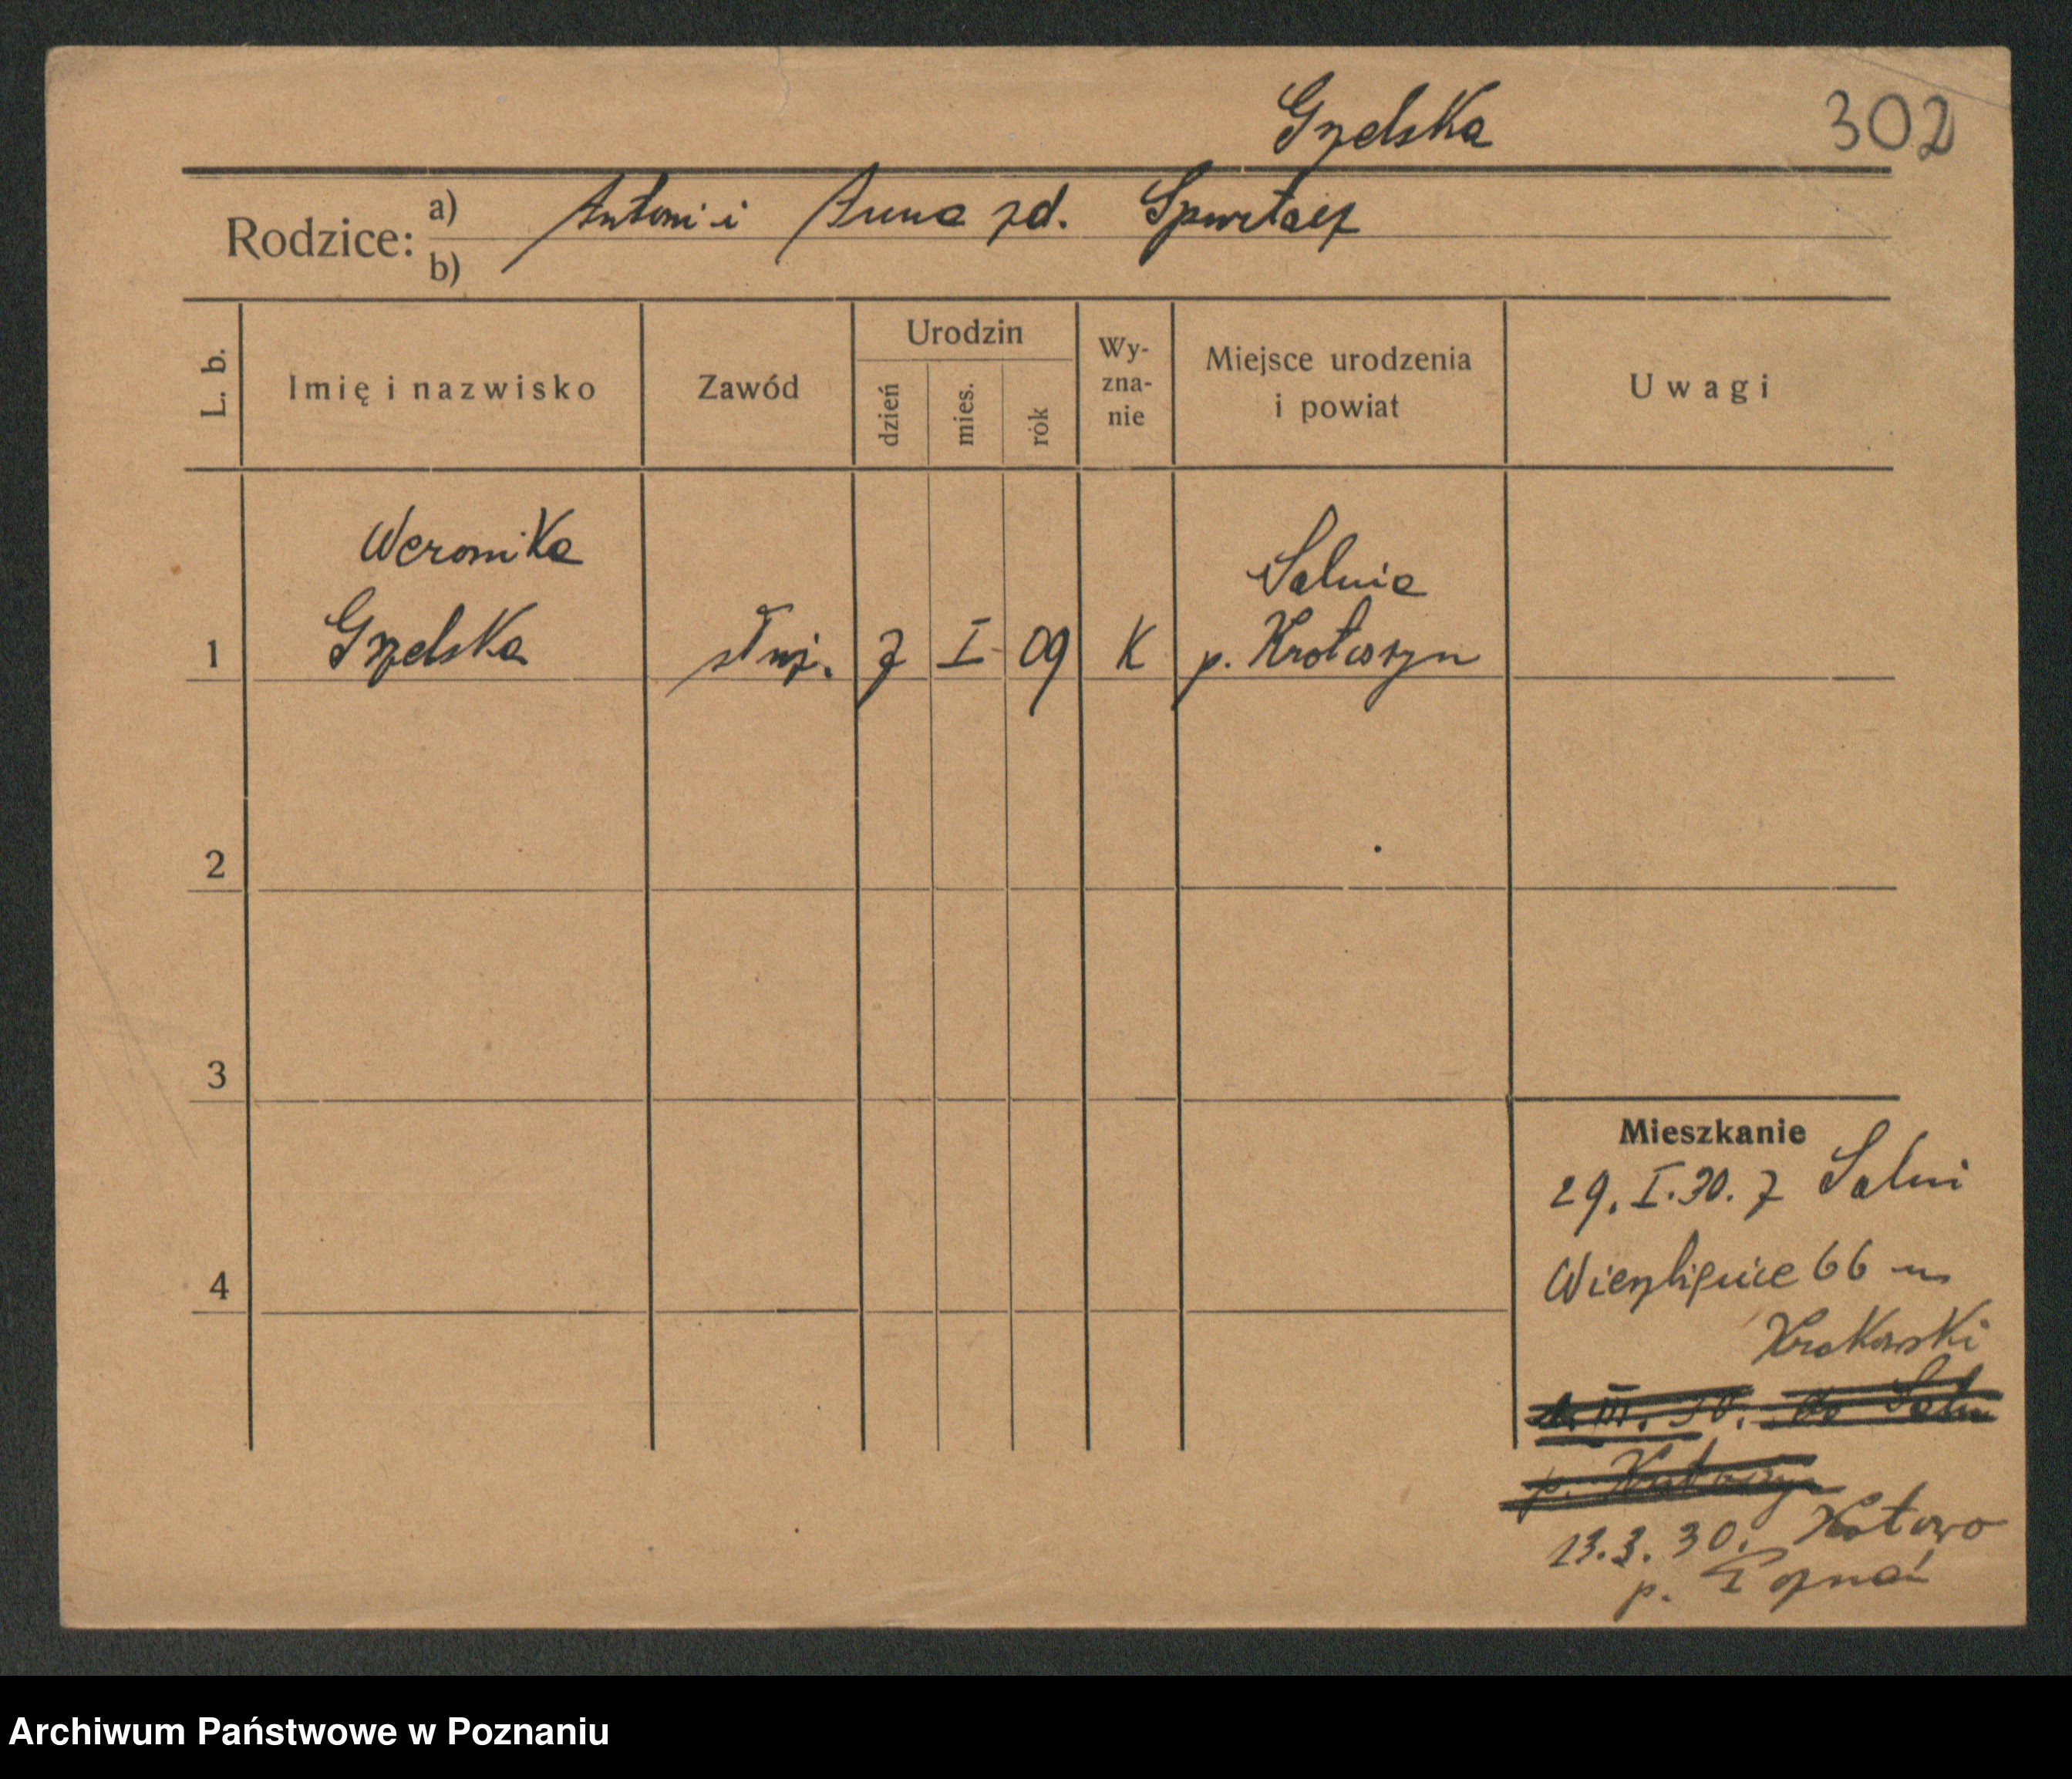 Gzelska 302
Rodzice: a) Antoni i Anna zd. Spurtacz
b)
L. b. Imię i nazwisko Zawód Urodzin dzień mies. rok Wy-zna-nie Miejsce urodzenia i powiat Uwagi
Weronika Salnia
1 Gzelska służ. 7 I 09 K p. Krotoszyn
2
3
4
Mieszkanie
29. I. 30. z Salni
66 m
Krakowski
III. 30. do Salni
p. Krotoszyn
13. 3. 30. Kotowo
p. Poznań
Archiwum Państwowe w Poznaniu